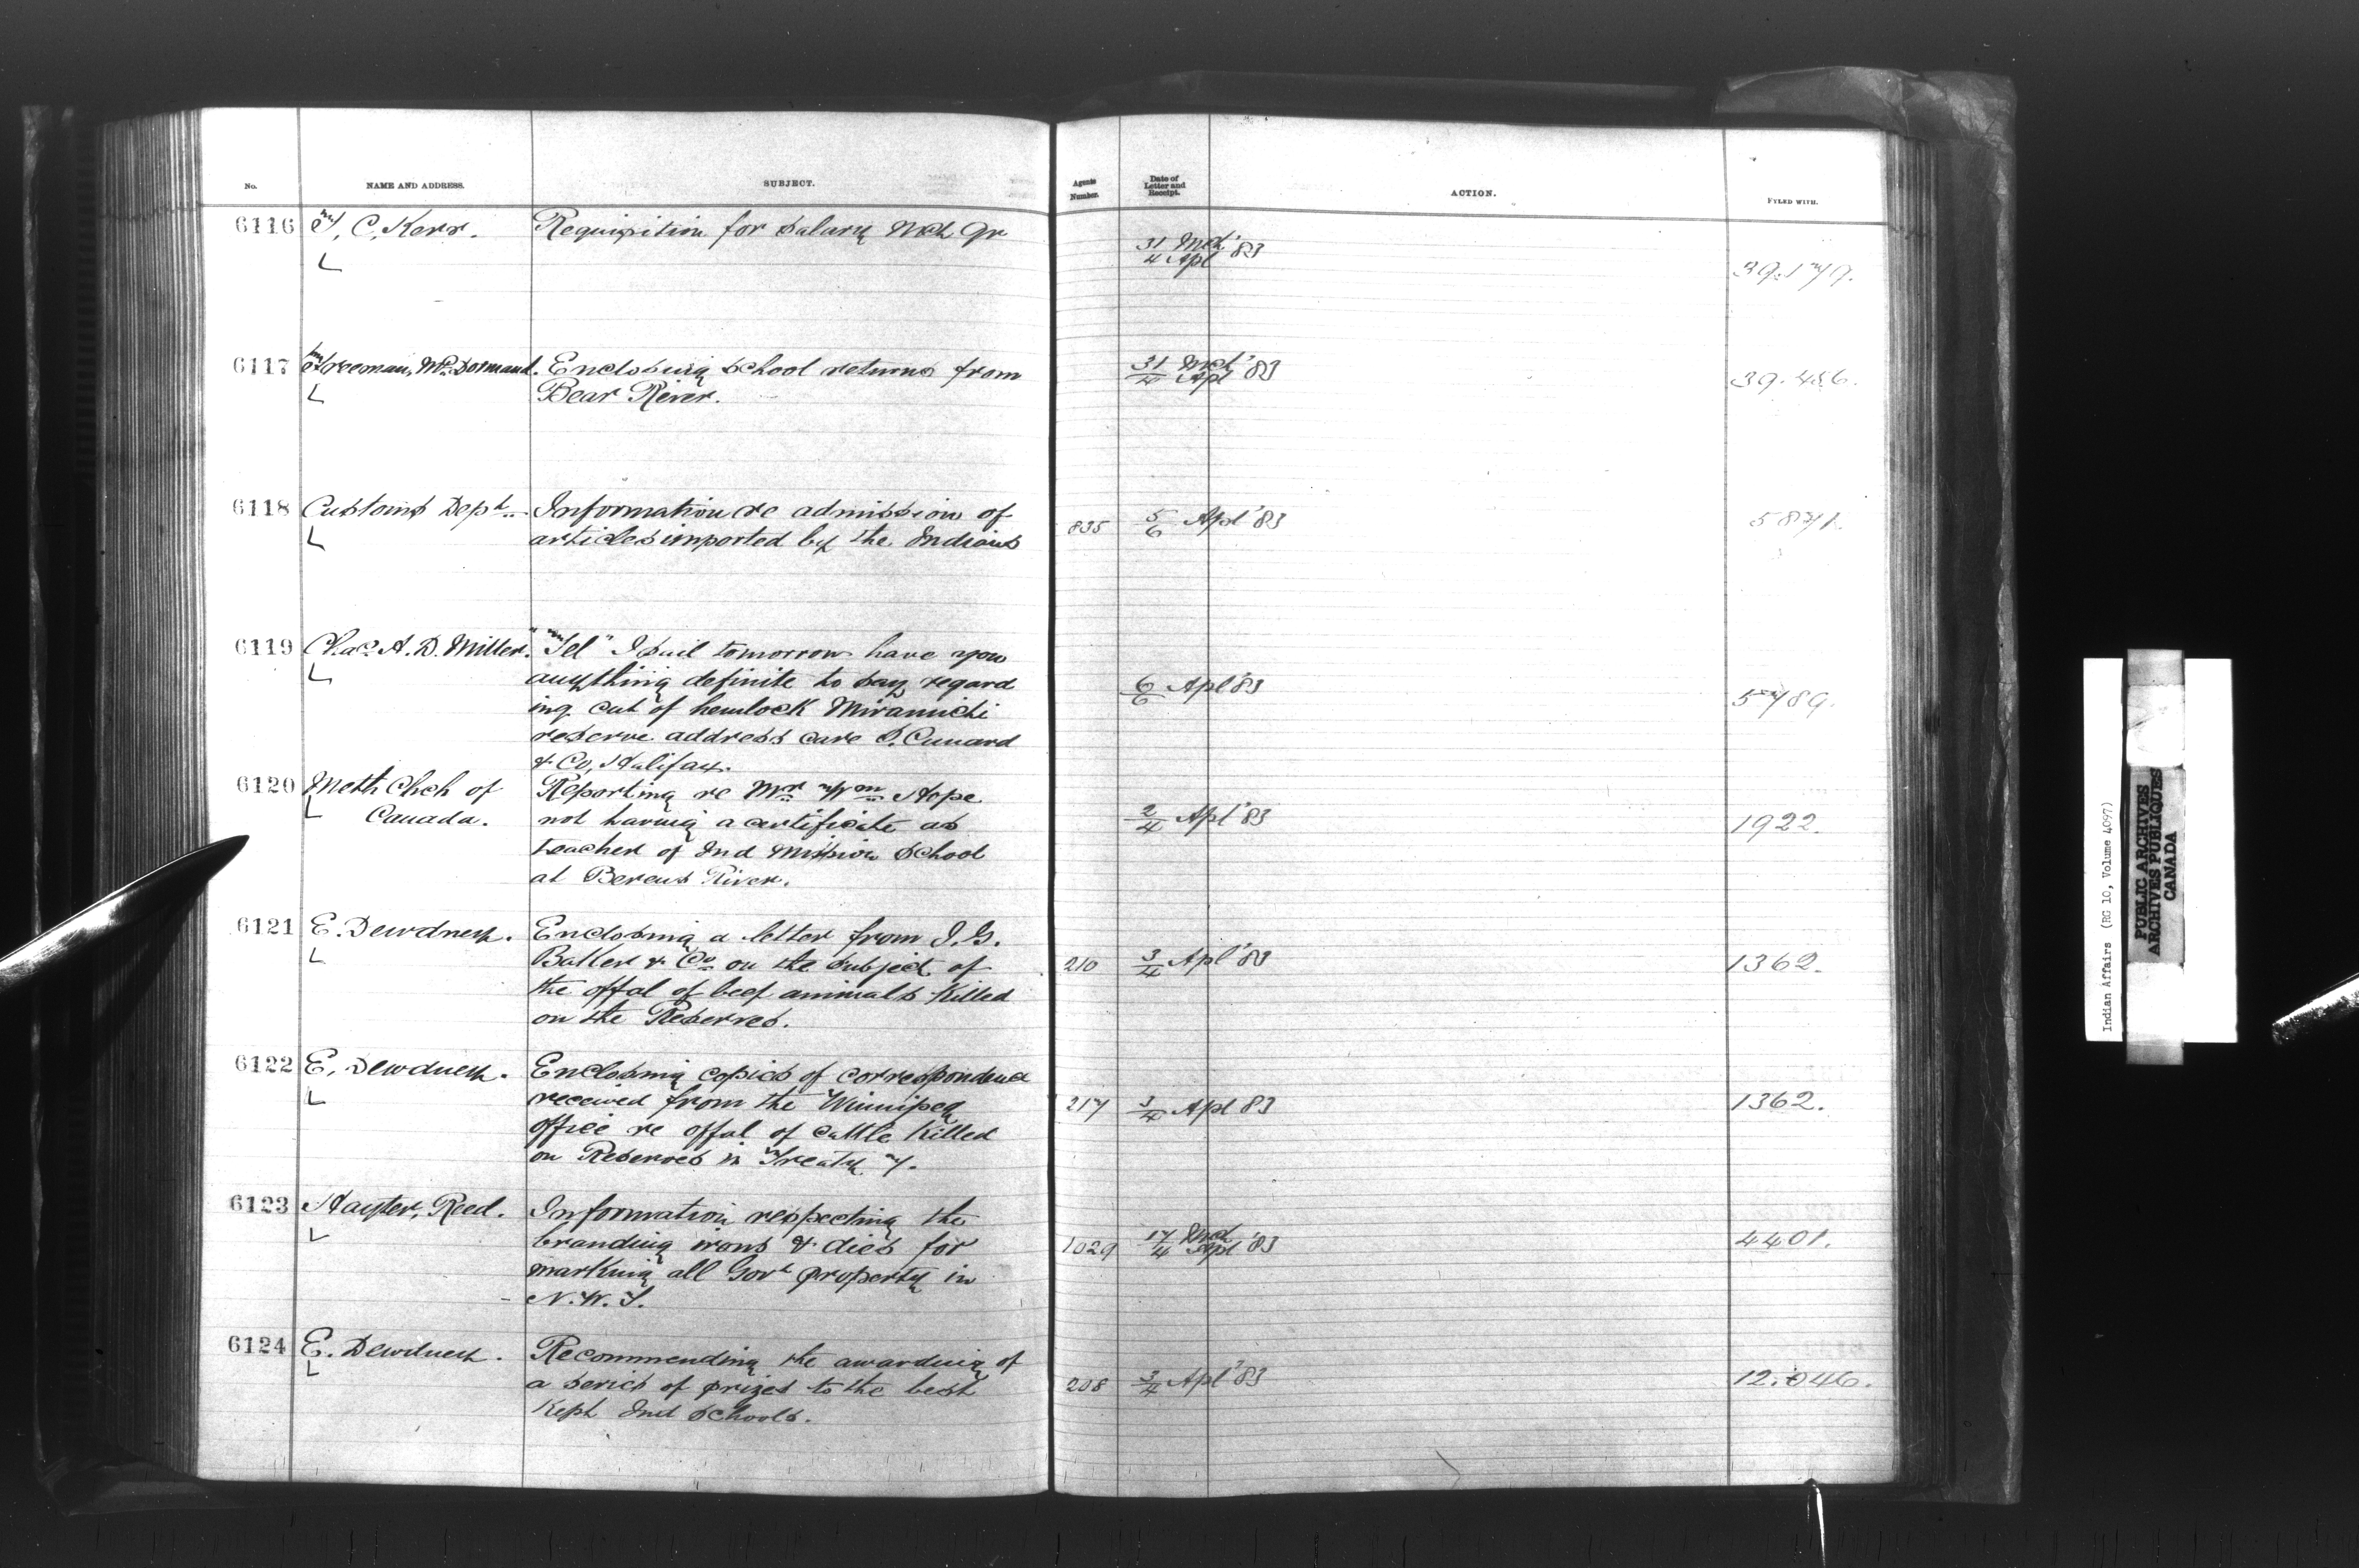 No. NAME AND ADDRESS. SUBJECT. Agents Number. Date of Letter and Receipt. ACTION. FYLED WITH.
6116 T, C, Kerr. Requisition for Salary Mch Qr 31 Mch '83 39.179.
4 Apl
6117 Freeman, McDormand. Enclosing School returns from 31 Mch '83 39.456.
Bear River. 4 Apl
6118 Customs Dept. Information re admission of 835 5/6 Apl '83 5871.
articles imported by the Indians
6119 Chas. A. D. Miller. "Tel" I sail tomorrow have you
anything definite to say regard 6/6 Apl '83 5789.
ing cut of hemlock Miramichi
reserve address care S. Cunard
& Co, Halifax.
6120 Meth Chch of Reporting re Mr Wm Hope
Canada. not having a certificate as 2/4 Apl '83 1922.
teacher of Ind Mission School
at Berens River.
6121 E. Dewdney. Enclosing a letter from I. G.
Baker & Co on the subject of 210 3/4 Apl '83 1362.
the offal of beef animals Killed
on the Reserves.
6122 E. Dewdney. Enclosing copies of correspondence
received from the Winnipeg 217 3/4 Apl 83 1362.
office re offal of cattle Killed
on Reserves in Treaty 7.
6123 Hayter, Reed. Information respecting the
branding irons & dies for 1029 17 Mch '83 4401.
marking all Govt property in 4 Apl
N. W. T.
6124 E. Dewdney. Recommending the awarding of
a series of prizes to the best 208 3/4 Apl '83 12.046.
Kept Ind Schools.
Indian Affairs (RG 10, Volume 4097)
PUBLIC ARCHIVES
ARCHIVES PUBLIQUES
CANADA